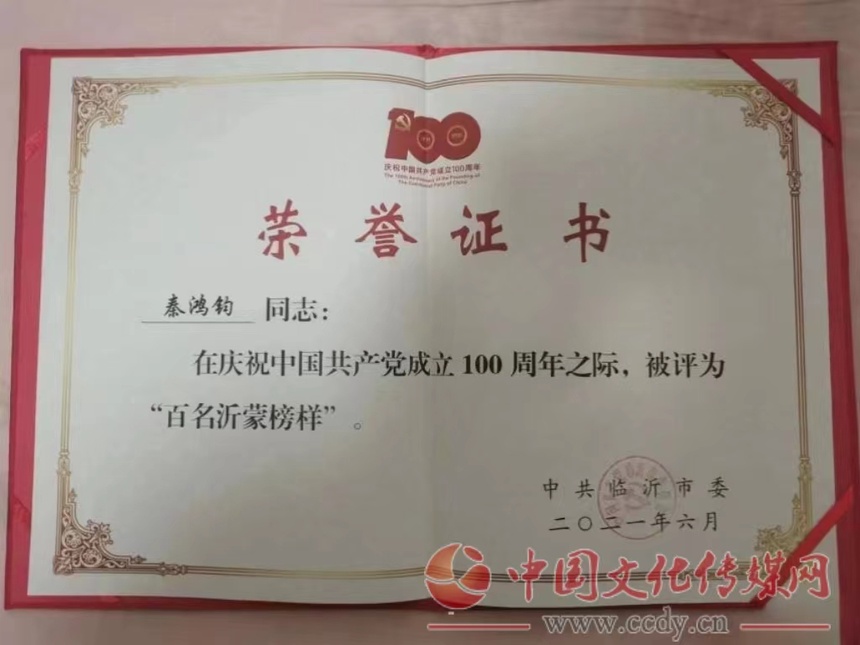 100
庆祝中国共产党成立100周年
The 100th Anniversary of the Founding of
The Communist Party of China
荣誉证书
秦鸿钧 同志：
在庆祝中国共产党成立 100 周年之际，被评为
“百名沂蒙榜样”。
中共临沂市委
二〇二一年六月
中国文化传媒网
www.ccdy.cn